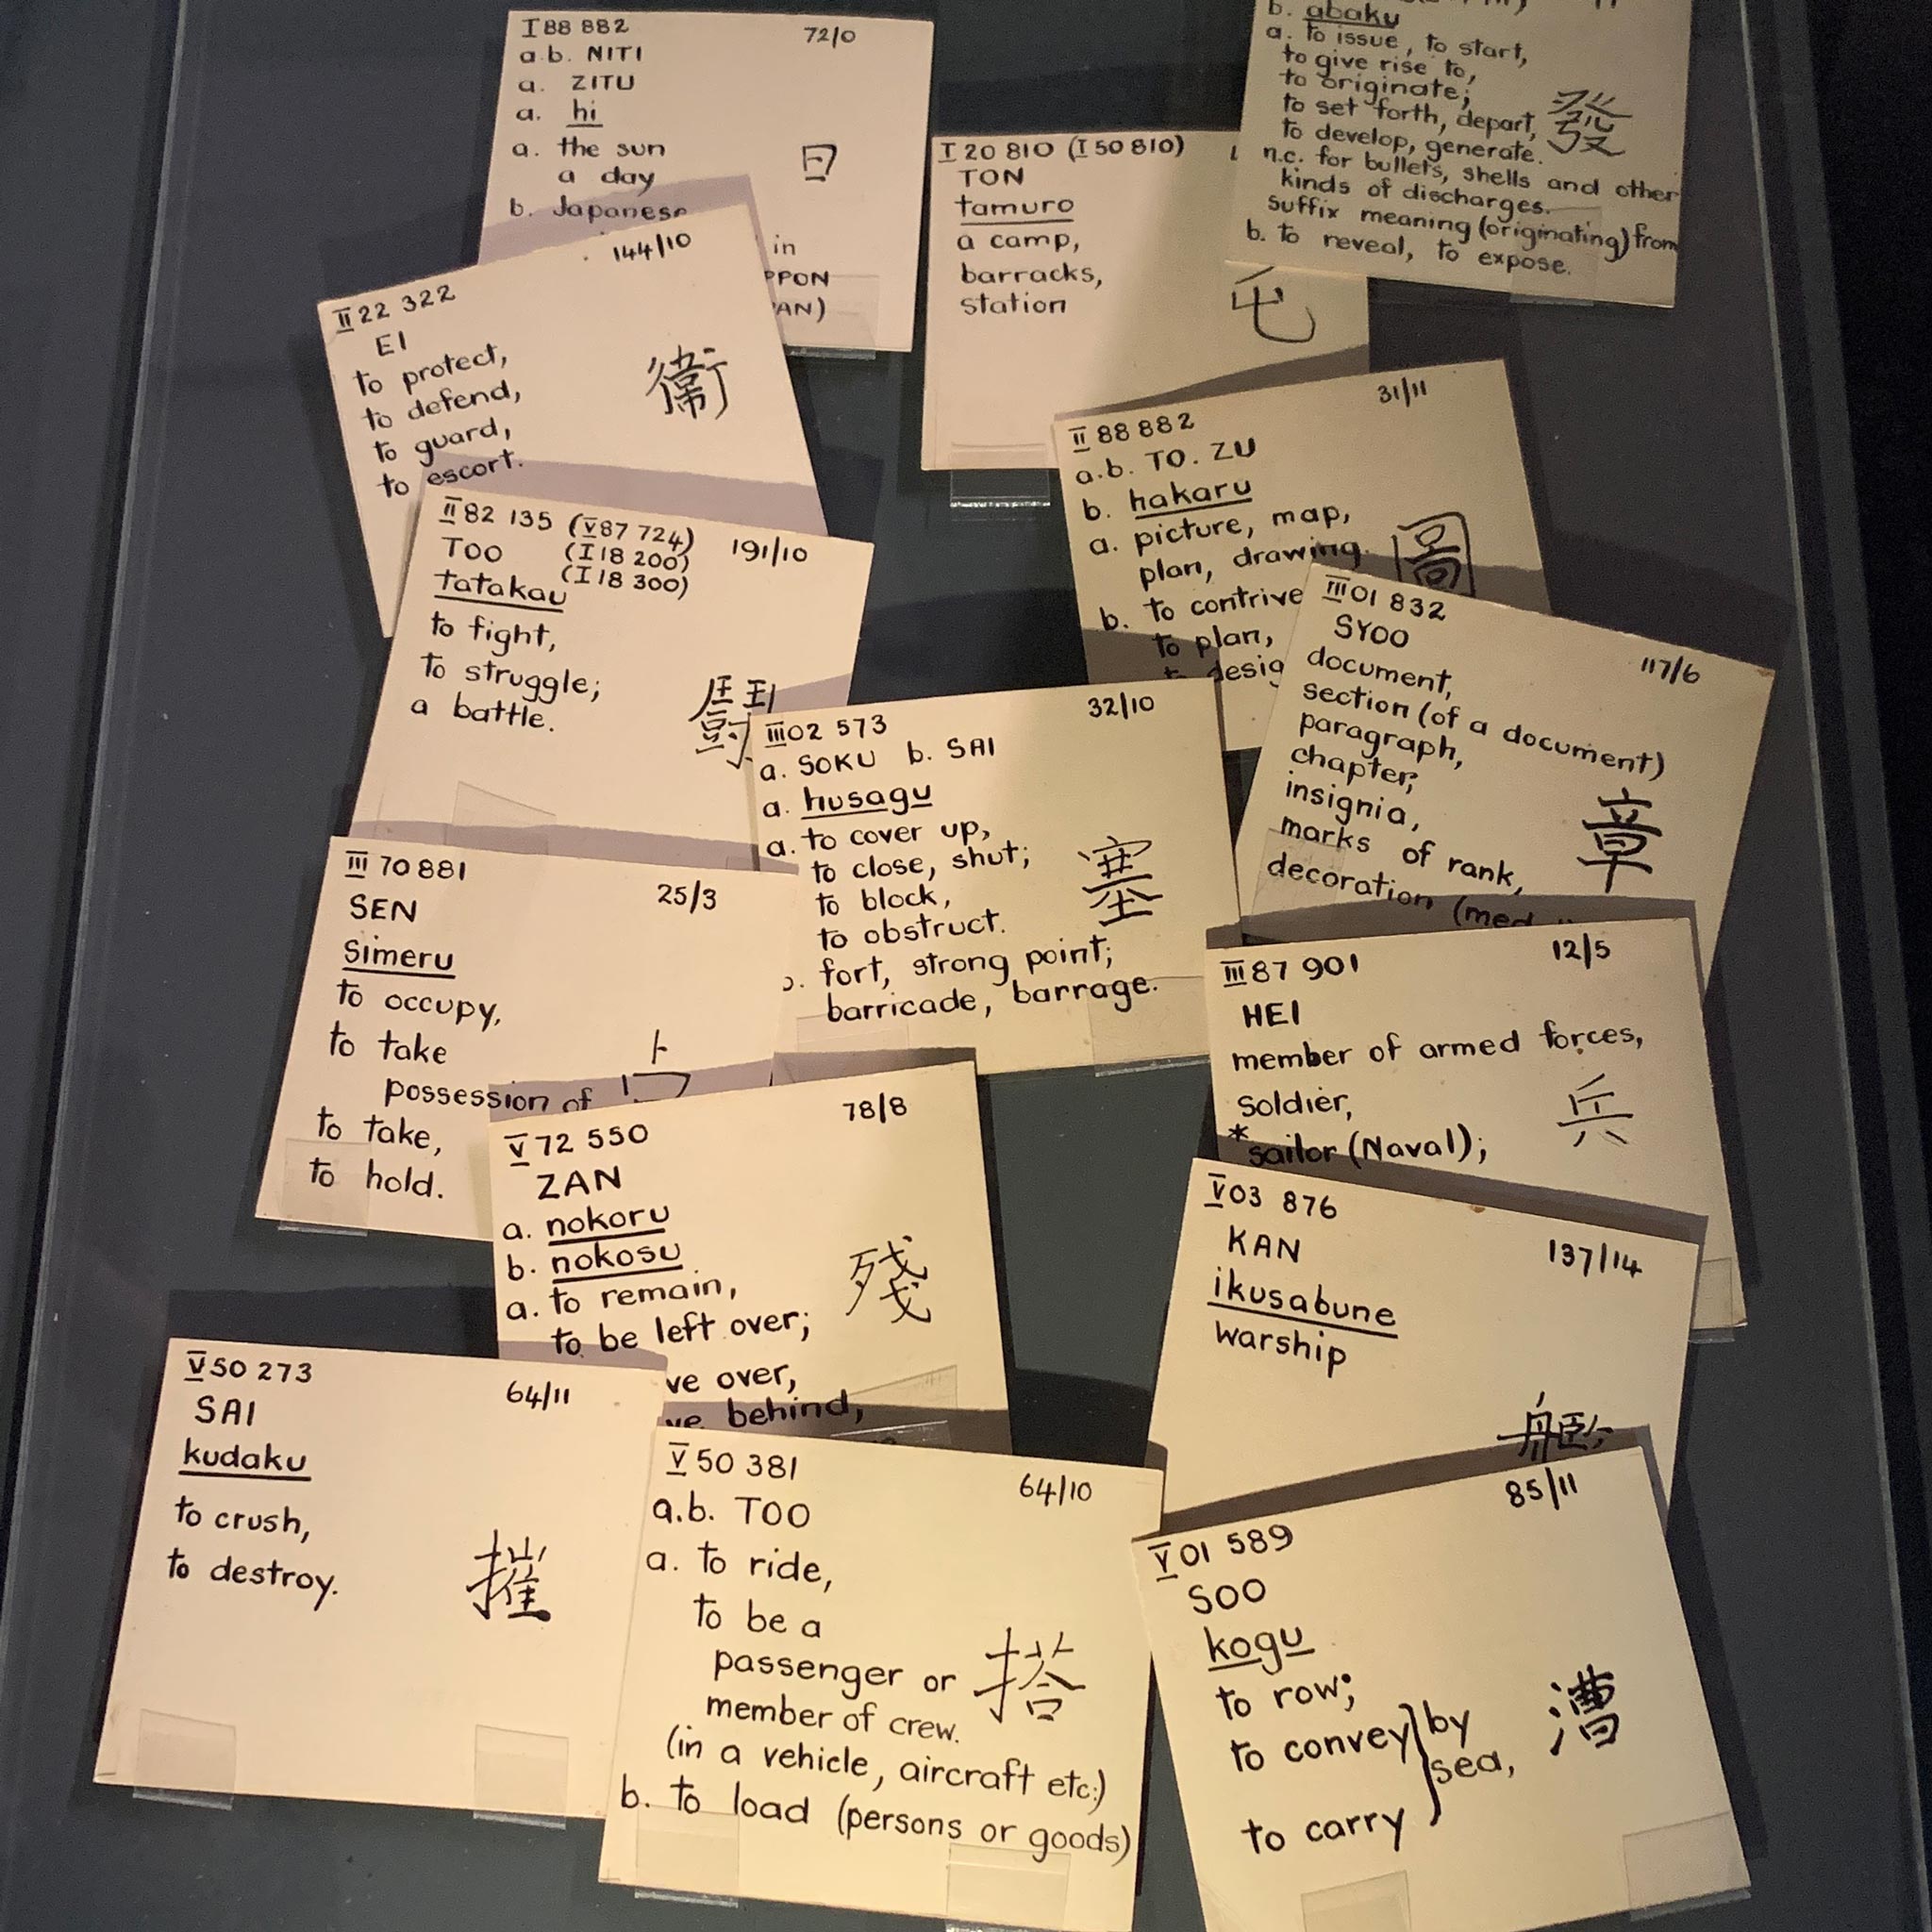 I 88 882
72/0
a.b. NITI
a. ZITU
a. hi
a. the sun
a day
日
b. Japanese
in
PPON
AN)
b. abaku
a. to issue, to start,
to give rise to,
to originate;
to set forth, depart,
to develop, generate.
發
n.c. for bullets, shells and other
kinds of discharges.
suffix meaning (originating) from
b. to reveal, to expose.
I 20 810 (I 50 810)
TON
tamuro
a camp,
barracks,
station
屯
144/10
II 22 322
EI
to protect,
to defend,
to guard,
to escort.
衞
31/11
II 88 882
a.b. TO. ZU
b. hakaru
a. picture, map,
plan, drawing.
b. to contrive
to plan,
to desig
圖
II 82 135 (V 87 724)
191/10
TOO (I 18 200)
(I 18 300)
tatakau
to fight,
to struggle;
a battle.
III 01 832
117/6
SYOO
document,
section (of a document)
paragraph,
chapter,
insignia,
marks of rank,
decoration (med
章
III 02 573
32/10
a. SOKU b. SAI
a. husagu
a. to cover up,
to close, shut;
to block,
to obstruct.
塞
b. fort, strong point;
barricade, barrage.
III 70 881
25/3
SEN
simeru
to occupy,
to take
possession of
to take,
to hold.
占
III 87 901
12/5
HEI
member of armed forces,
soldier,
*sailor (Naval);
兵
V 72 550
78/8
ZAN
a. nokoru
b. nokosu
a. to remain,
to be left over;
ve over,
ve behind,
殘
V 03 876
137/14
KAN
ikusabune
warship
艦
V 50 273
64/11
SAI
kudaku
to crush,
to destroy.
摧
V 50 381
64/10
a.b. TOO
a. to ride,
to be a
passenger or
member of crew.
(in a vehicle, aircraft etc.)
b. to load (persons or goods)
搭
V 01 589
85/11
SOO
kogu
to row;
to convey } by
sea,
to carry
漕